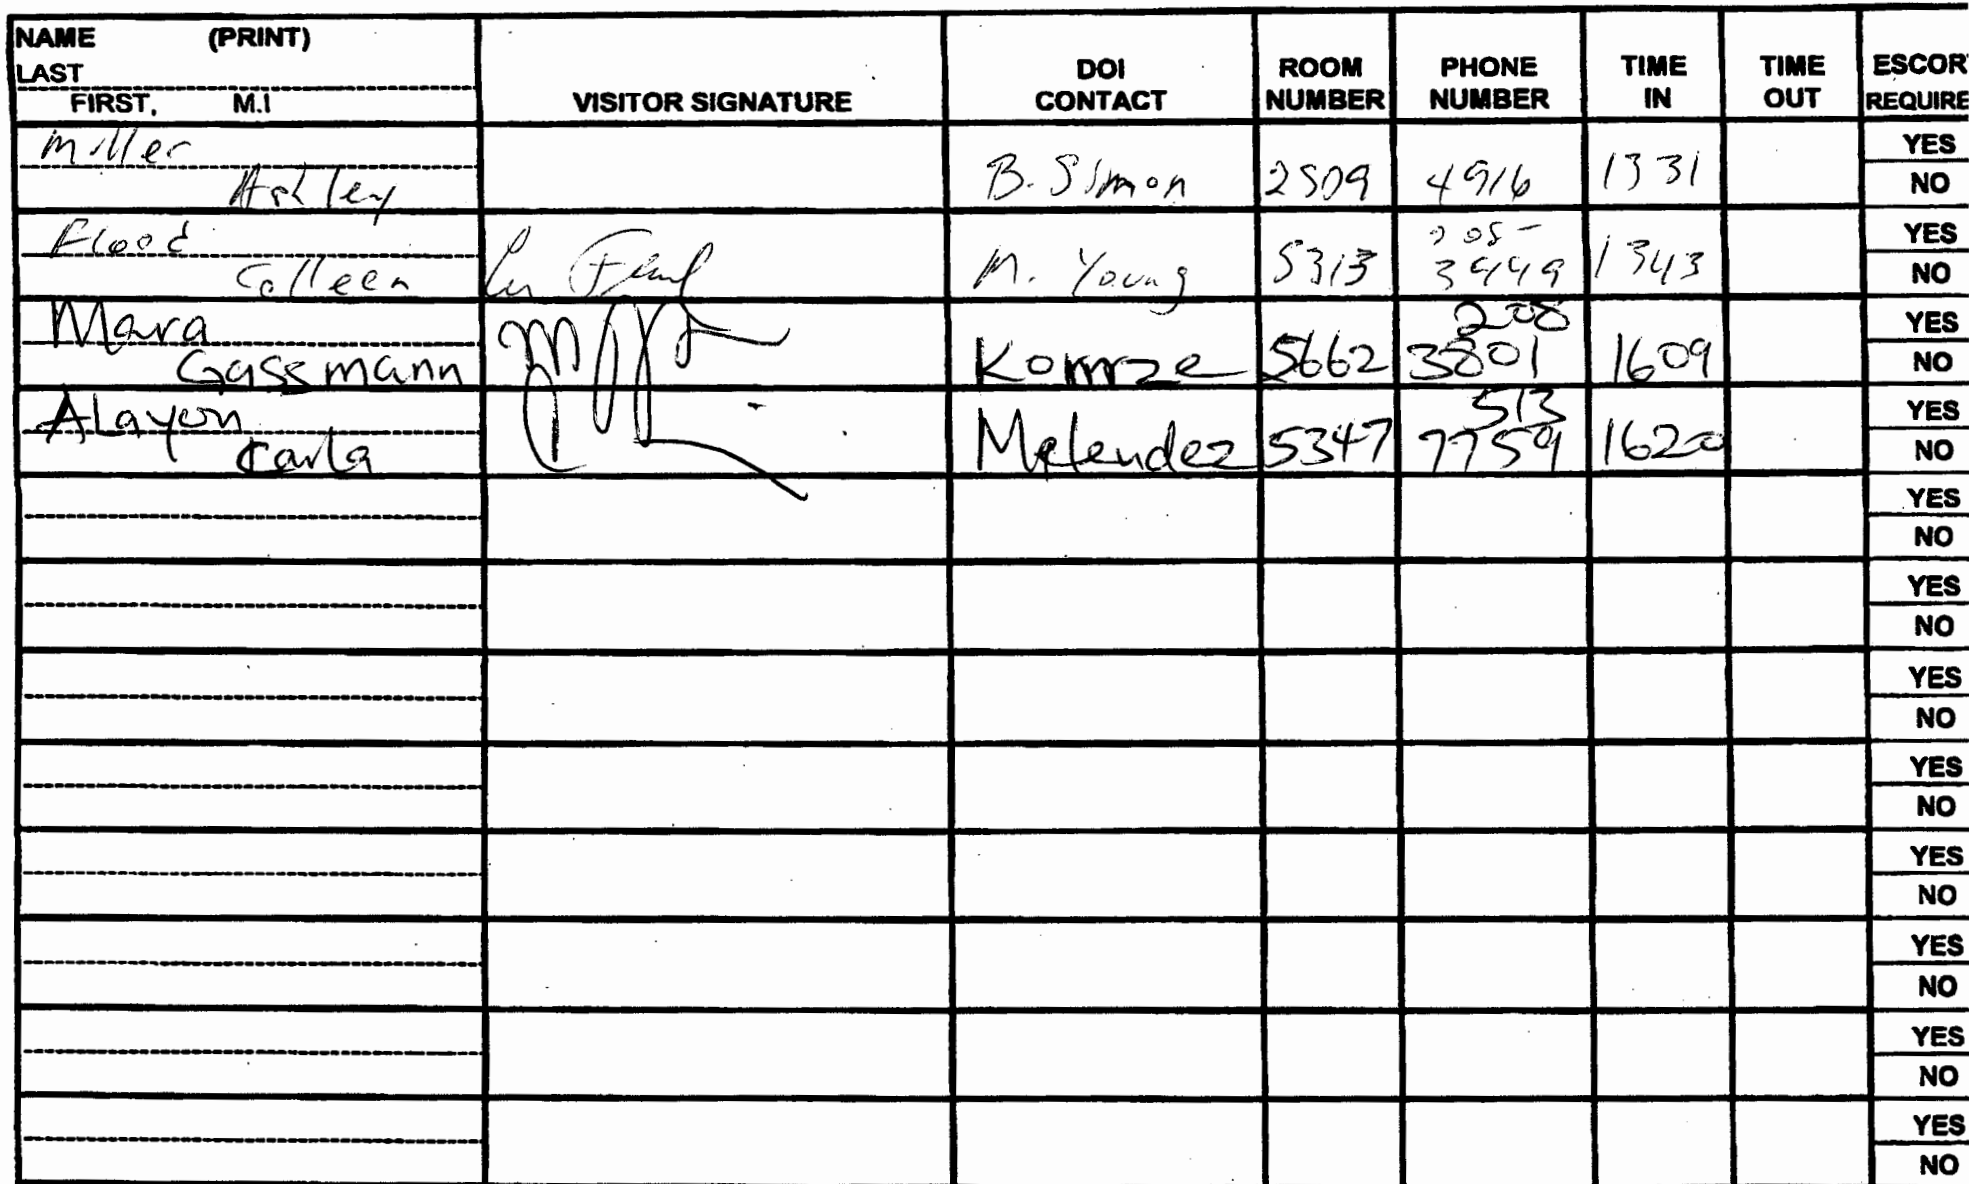 NAME (PRINT)
LAST
FIRST, M.I
VISITOR SIGNATURE
DOI
CONTACT
ROOM
NUMBER
PHONE
NUMBER
TIME
IN
TIME
OUT
ESCOR
REQUIRE
Miller
Ashley
B. Simon 2509 4916 1331
YES
NO
Flood
Colleen
M. Young 5313 1343
YES
NO
Mara
Gassmann
208
5662 3801 1609
YES
NO
ALayon
Carla
513
Melendez 5347 7759 1620
YES
NO
YES
NO
YES
NO
YES
NO
YES
NO
YES
NO
YES
NO
YES
NO
YES
NO